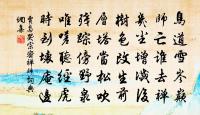 鳥道雪岑巔
師亡誰去禪
几塵增滅後
樹色改生前
層塔當松吹
殘蹤傍野泉
唯嗟聽經虎
時到壞庵邊
賈島哭宗密禪師詩詞典
網集